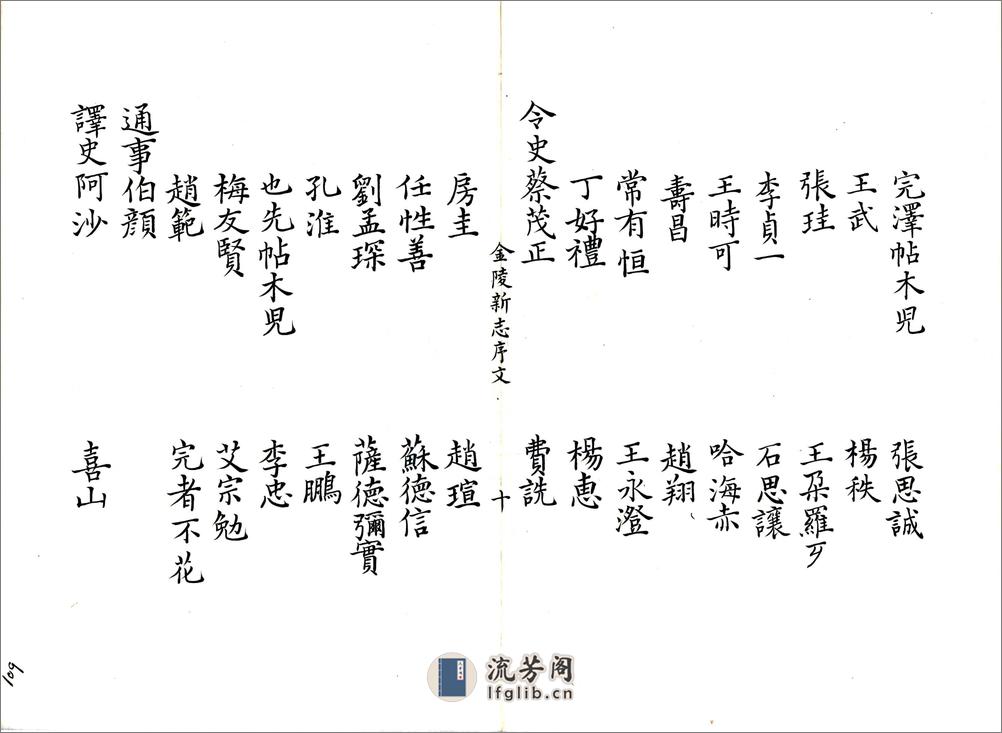 完澤帖木児 張思誠
王武 楊秩
張珪 王朶羅歹
李貞一 石思讓
王時可 哈海赤
壽昌 趙翔
常有恒 王永澄
丁好禮 楊惠
令史蔡茂正 費詵
金陵新志序文 十
房圭 趙瑄
任性善 蘇德信
劉孟琛 薩德彌實
孔淮 王鵬
也先帖木児 李忠
梅友賢 艾宗勉
趙範 完者不花
通事伯顔
譯史阿沙 喜山
109
流芳阁
lfglib.cn